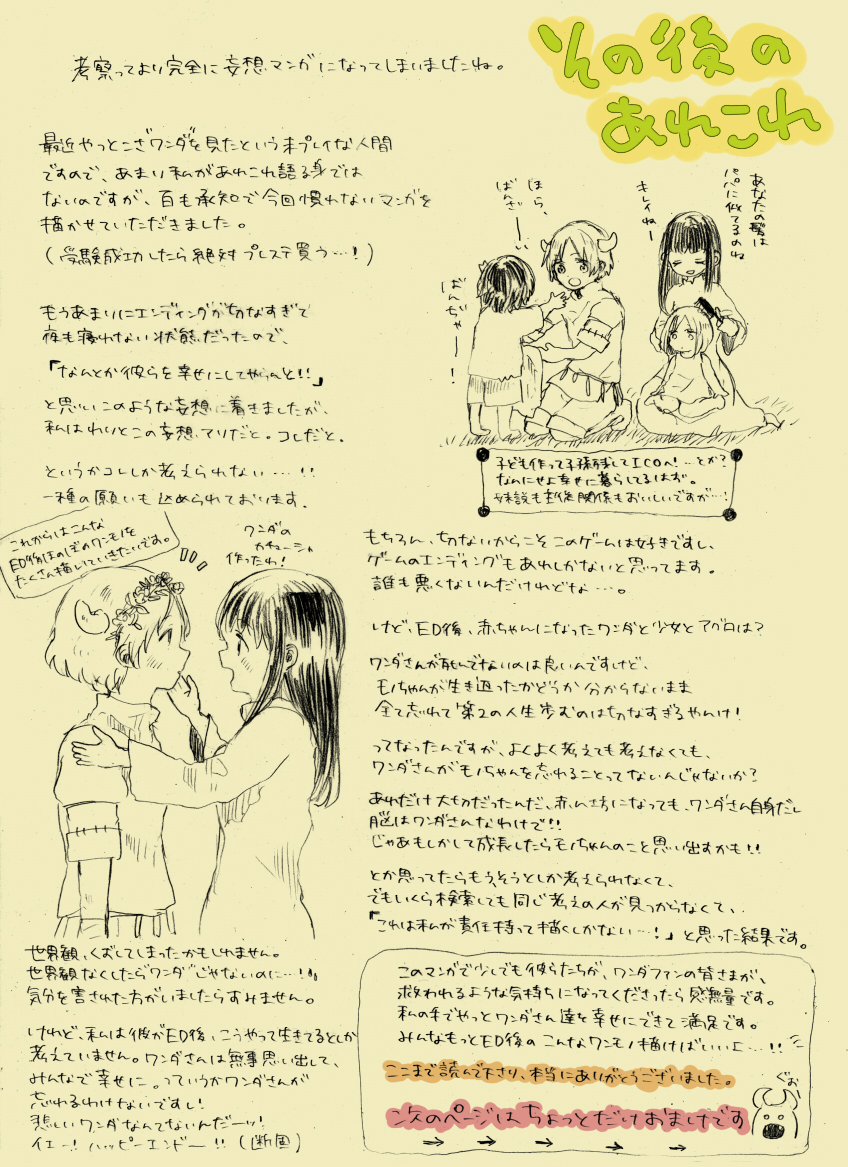 その後の
あれこれ
考察ってより完全に妄想マンガになってしまいましたね。
最近やっとこさワンダを見たという未プレイな人間
ですので、あまり私があれこれ語る身では
ないのですが、百も承知で今回慣れないマンガを
描かせていただきました。
(受験成功したら絶対プレステ買う…!)
もうあまりにエンディングが切なすぎて
夜も寝れない状態だったので、
「なんとか彼らを幸せにしてやらんと!!」
と思いこのような妄想に着きましたが、
私はわりとこの妄想アリだと。コレだと。
というかコレしか考えられない…!!
一種の願いも込められております。
あなたの髪は
パパに似てるのね
キレイねー
ほら、
ばんざーい
ばんぢゃー!
子ども作って子孫残してICOへ!…とか?
なんにせよ幸せに暮らしてるはず。
姉妹説も幸後関係もおいしいですが…!
これからはこんな
ED後ほのぼのワンモノを
たくさん描いていきたいです。
ワンダの
カチューシャ
作ったわ!
もちろん、切ないからこそこのゲームは好きですし、
ゲームのエンディングもあれしかないと思ってます。
誰も悪くないんだけれどな…。
けど、ED後、赤ちゃんになったワンダと少女とアグロは?
ワンダさんが死んでないのは良いんですけど、
モノちゃんが生き返ったかどうか分からないまま
全て忘れて第2の人生歩むのは切なすぎるやんけ!
ってなったんですが、よくよく考えても考えなくても、
ワンダさんがモノちゃんを忘れることってないんじゃないか?
あれだけ大ものだったんだ、赤ん坊になっても、ワンダさん自身だし
脳はワンダさんなわけで!!
じゃあもしかして成長したらモノちゃんのこと思い出すかも!!
とか思ってたらもう、そうとしか考えられなくて、
でもいくら検索しても同じ考えの人が見つからなくて、
「これは私が責任持って描くしかない…!」と思った結果です。
世界観、くずしてしまったかもしれません。
世界観なくしたらワンダじゃないのに…!!
気分を害された方がいましたらすみません。
けれど、私は彼がED後、こうやって生きてるとしか
考えていません。ワンダさんは無事思い出して、
みんなで幸せに。っていうかワンダさんが
忘れるわけないですし!
悲しいワンダなんてないんだーッ!
イエー!ハッピーエンドー!!(断固)
このマンガで少しでも彼らたちが、ワンダファンの皆さまが、
救われるような気持ちになってくださったら感無量です。
私の手でやっとワンダさん達を幸せにできて満足です。
みんなもっとED後のこんなワンモノ描けばいいよ…!!
ここまで読んで下さり、本当にありがとうございました。
ぐぉ
次のページはちょっとだけおまけです